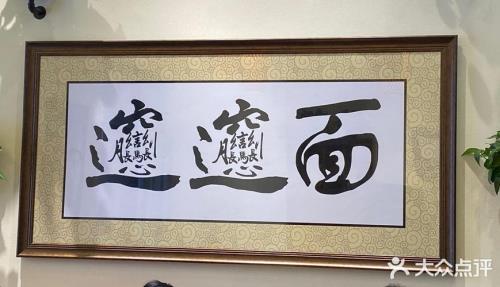 𰻞𰻞面
大众点评